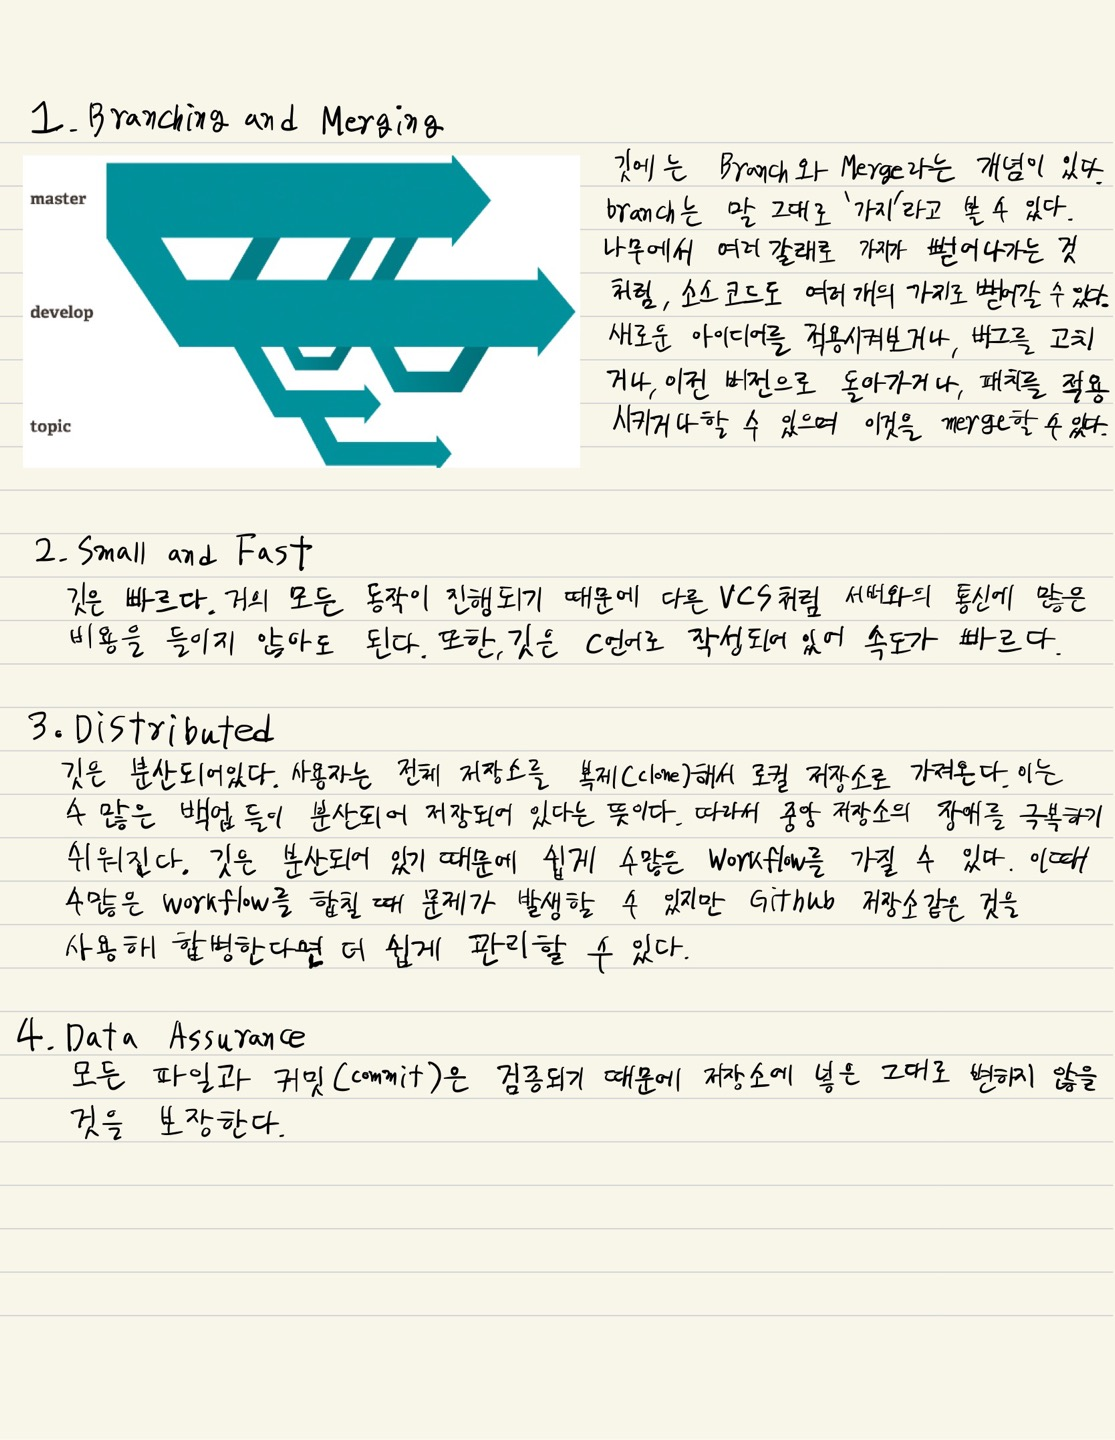 1. Branching and Merging
master
develop
topic
깃에는 Branch와 Merge라는 개념이 있다.
branch는 말 그대로 '가지'라고 볼 수 있다.
나무에서 여러 갈래로 가지가 뻗어나가는 것
처럼, 소스코드도 여러개의 가지로 뻗어갈 수 있다.
새로운 아이디어를 적용시켜보거나, 버그를 고치
거나, 이전 버전으로 돌아가거나, 패치를 적용
시키거나 할 수 있으며 이것을 merge할 수 있다.
2. Small and Fast
깃은 빠르다. 거의 모든 동작이 진행되기 때문에 다른 VCS처럼 서버와의 통신에 많은
비용을 들이지 않아도 된다. 또한, 깃은 C언어로 작성되어 있어 속도가 빠르다.
3. Distributed
깃은 분산되어있다. 사용자는 전체 저장소를 복제(clone)해서 로컬 저장소로 가져온다. 이는
수 많은 백업 들이 분산되어 저장되어 있다는 뜻이다. 따라서 중앙 저장소의 장애를 극복하기
쉬워진다. 깃은 분산되어 있기 때문에 쉽게 수많은 workflow를 가질 수 있다. 이때
수많은 workflow를 합칠 때 문제가 발생할 수 있지만 Github 저장소같은 것을
사용해 합병한다면 더 쉽게 관리할 수 있다.
4. Data Assurance
모든 파일과 커밋(commit)은 검증되기 때문에 저장소에 넣은 그대로 변하지 않을
것을 보장한다.